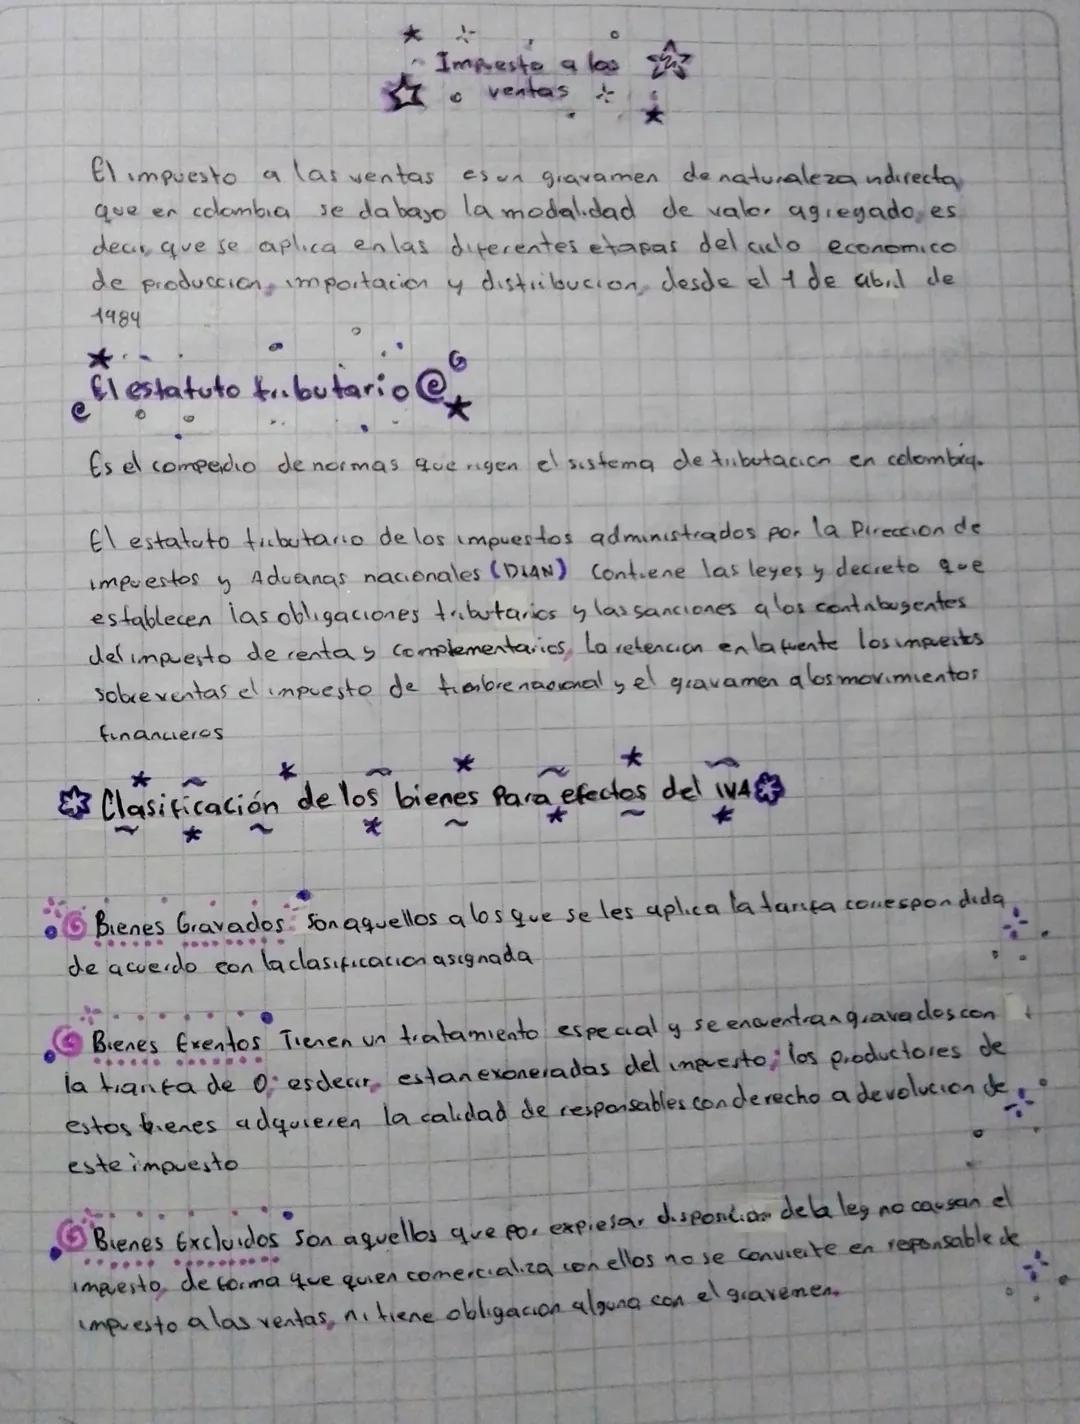 Impuesto a las
ventas
El impuesto a las ventas es un gravamen de naturaleza indirecta
que en colombia se da bajo la modalidad de valor agregado, es
decir, que se aplica en las diferentes etapas del ciclo economico
de produccion, importacion y distribucion, desde el 1 de abril de
1984
El estatuto tributario
Es el compedio de normas que rigen el sistema de tributacion en colombia.
El estatuto tributario de los impuestos administrados por la Direccion de
impuestos y Aduanas nacionales (DIAN) Contiene las leyes y decreto que
establecen las obligaciones tributarios y las sanciones a los contribuyentes
del impuesto de renta y complementarios, la retencion en la fuente los impuestos
sobre ventas el impuesto de timbre nacional y el gravamen a los movimientos
financieros
Clasificación de los bienes Para efectos del IVA
Bienes Gravados: Son aquellos a los que se les aplica la tarifa correspondida,
de acuerdo con la clasificacion asignada
Bienes Exentos Tienen un tratamiento especial y se encuentran gravados con
la tarifa de 0; es decir, estan exoneradas del impuesto; los productores de
estos bienes adquieren la calidad de responsables con derecho a devolucion de
este impuesto
Bienes Excluidos Son aquellos que por expresar disposicion de la ley no causan el
impuesto, de forma que quien comercializa con ellos no se convierte en responsable de
impuesto a las ventas, ni tiene obligacion alguna con el gravemen.